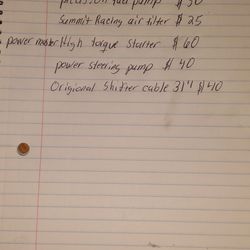 fuel pump $ 50
Summit Racing air filter $ 25
power master High torque starter $ 60
power steering pump $ 40
Origional Shifter cable 31" $ 40